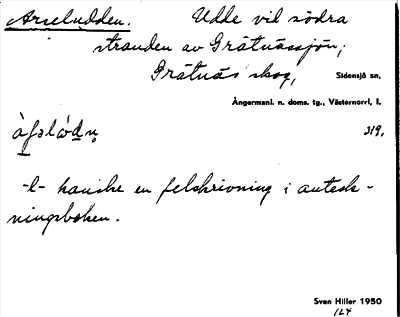 Arseludden. Udde vid södra
stranden av Grätnässjön,
Grätnäs skog, Sidensjö sn,
Ångermanl. n. doms. tg., Västernorrl. l.
319.
-l- kanske en felskrivning i anteck-
ningsboken.
Sven Hiller 1950